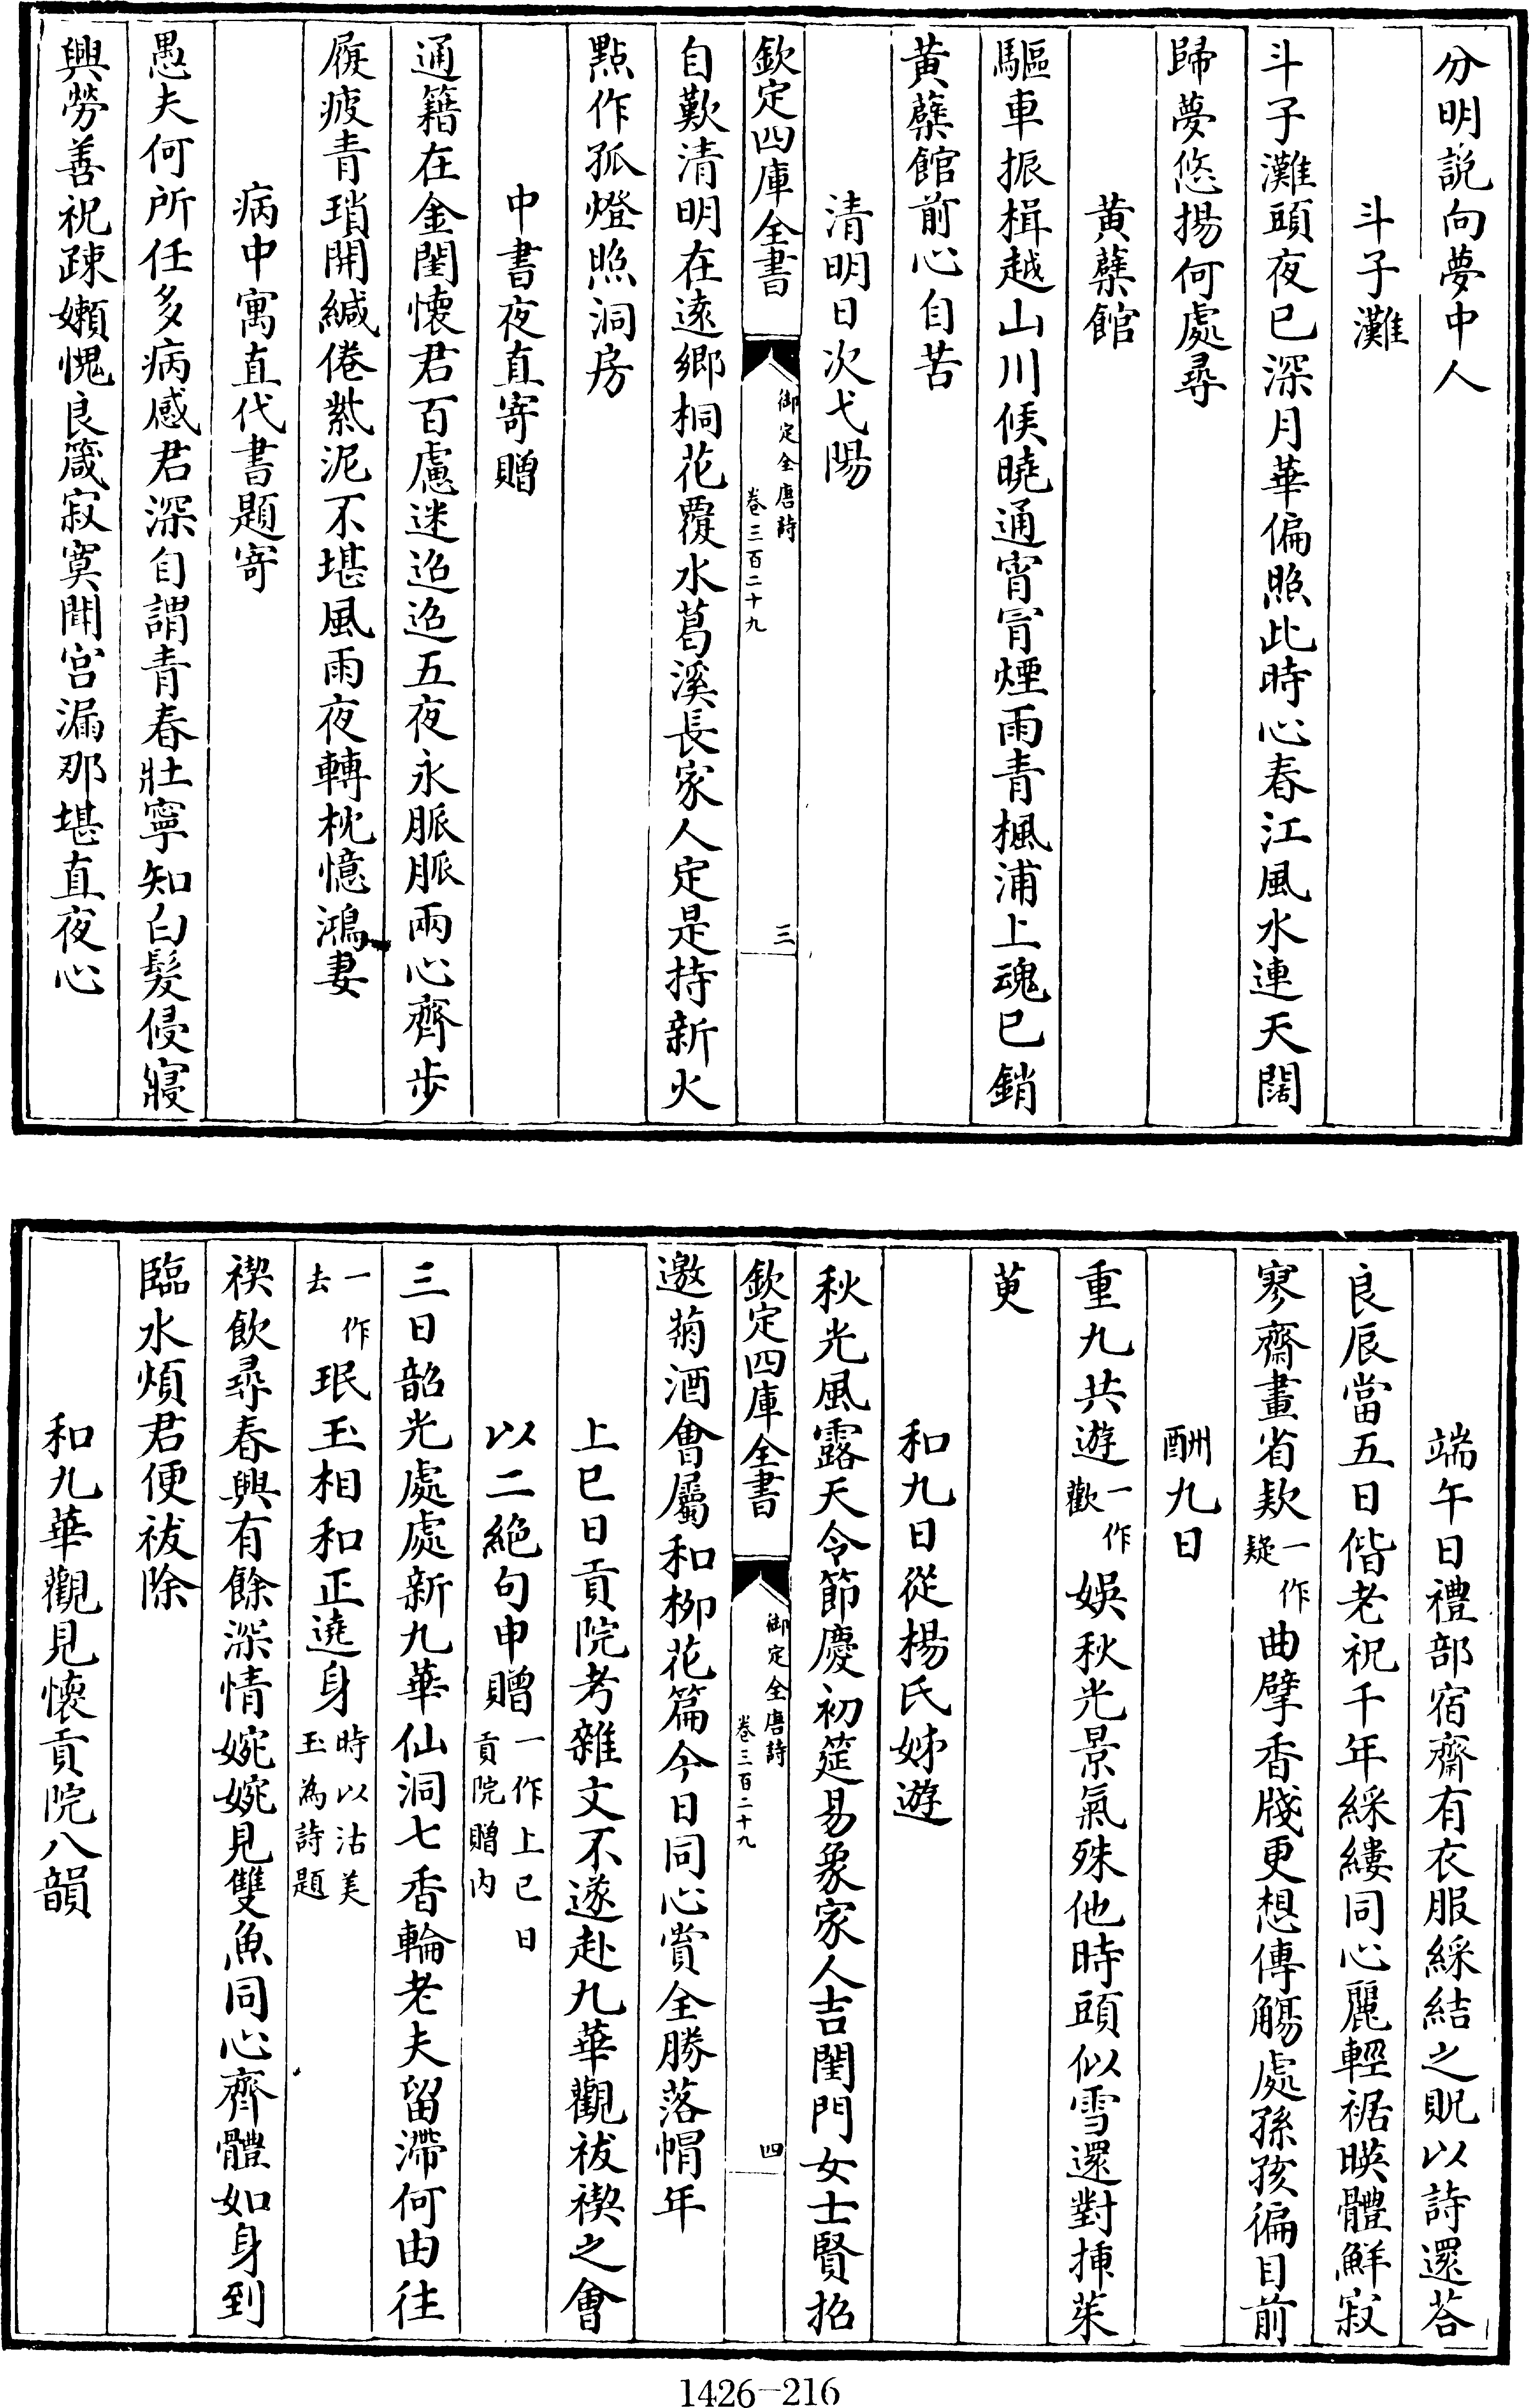 分明説向夢中人
斗子灘
斗子灘頭夜已深月華偏照此時心春江風水連天闊
歸夢悠揚何處尋
黄蘗館
驅車振楫越山川候曉通宵冐煙雨青楓浦上魂已銷
黄蘗館前心自苦
清明日次弋陽
欽定四庫全書
御定全唐詩
卷三百二十九
三
自歎清明在逺鄉桐花覆水葛溪長家人定是持新火
點作孤燈照洞房
中書夜直寄贈
通籍在金閨懷君百慮迷迢迢五夜永脈脈兩心齊步
履疲青瑣開緘倦紫泥不堪風雨夜轉枕憶鴻妻
病中寓直代書題寄
愚夫何所任多病感君深自謂青春壯寧知白髪侵寢
興勞善祝疎嬾愧良箴寂寞聞宫漏那堪直夜心
端午日禮部宿齋有衣服綵結之貺以詩還荅
良辰當五日偕老祝千年綵縷同心麗輕裾暎體鮮寂
寥齋畫省欵一作疑曲擘香牋更想傳觴處孫孩徧目前
酬九日
重九共遊一作歡娛秋光景氣殊他時頭似雪還對揷茱
萸
和九日從楊氏姊遊
秋光風露天令節慶初筵易象家人吉閨門女士賢招
欽定四庫全書
御定全唐詩
卷三百二十九
四
邀菊酒會屬和柳花篇今日同心賞全勝落帽年
上巳日貢院考雜文不遂赴九華觀祓禊之會
以二絶句申贈一作上巳日貢院贈内
三日韶光處處新九華仙洞七香輪老夫留滯何由往
一作去珉玉相和正遶身時以沽美玉為詩題
禊飲尋春興有餘深情婉婉見雙魚同心齊體如身到
臨水煩君便祓除
和九華觀見懷貢院八韻
1426-216